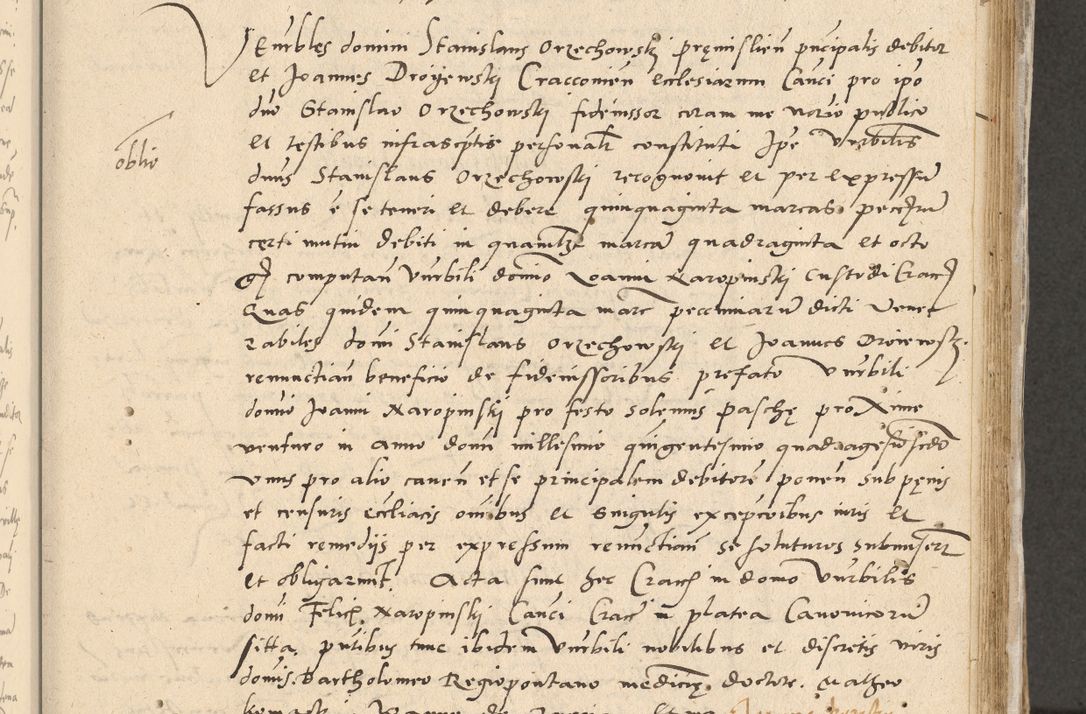 Venrbles domini Stanislaus Orzechowskj pręmislien pncipalis debitor
et Joannes Droyewskj Cracconien ecclesiarum Canci pro ipo
dno Stanislao Orzechowskj fideiussor coram me notrio publico
et testibus infrascptis personalr constituti Ipe Vnrbilis
dnus Stanislaus Orzechowskj recognouit et per expressum
fassus e se teneri et debere quinquaginta marcas pecc
certi mutui debiti in quamlzt marca quadraginta et octo
gj computan Vnrbili domino Joanni Naropinskj Custodi Cracc
Quas quidem quinquaginta marc peccuniarum dicti Vene
rabiles domi Stanislaus Orzechowskj et Joannes Droiewsk.
renunctian beneficio de fideiussoribus prefato Vnrbili
domno Joanni Naropinskj pro festo solemnis paschę proxime
venturo in anno domi millesimo quigentesimo quadragesio scdo
vnus pro alio cauen et se principalem debitore ponen sub pęnis
et censuris eccliacis omibus et singulis excepcoibus iuris et
facti remedijs per expressum renunctian se soluturos submiserunt
et obligarunt. Acta sunt hec Cracc in domo Vnrbilis
domi Felicis Naropinskj Canci Cracc in platea Canonicorum
sitta. pntibus tunc ibidem Vnrbili nobilibus et discretis viris
domis Bartholomeo Regiopontano medicinę doctore. Matheo
oblio